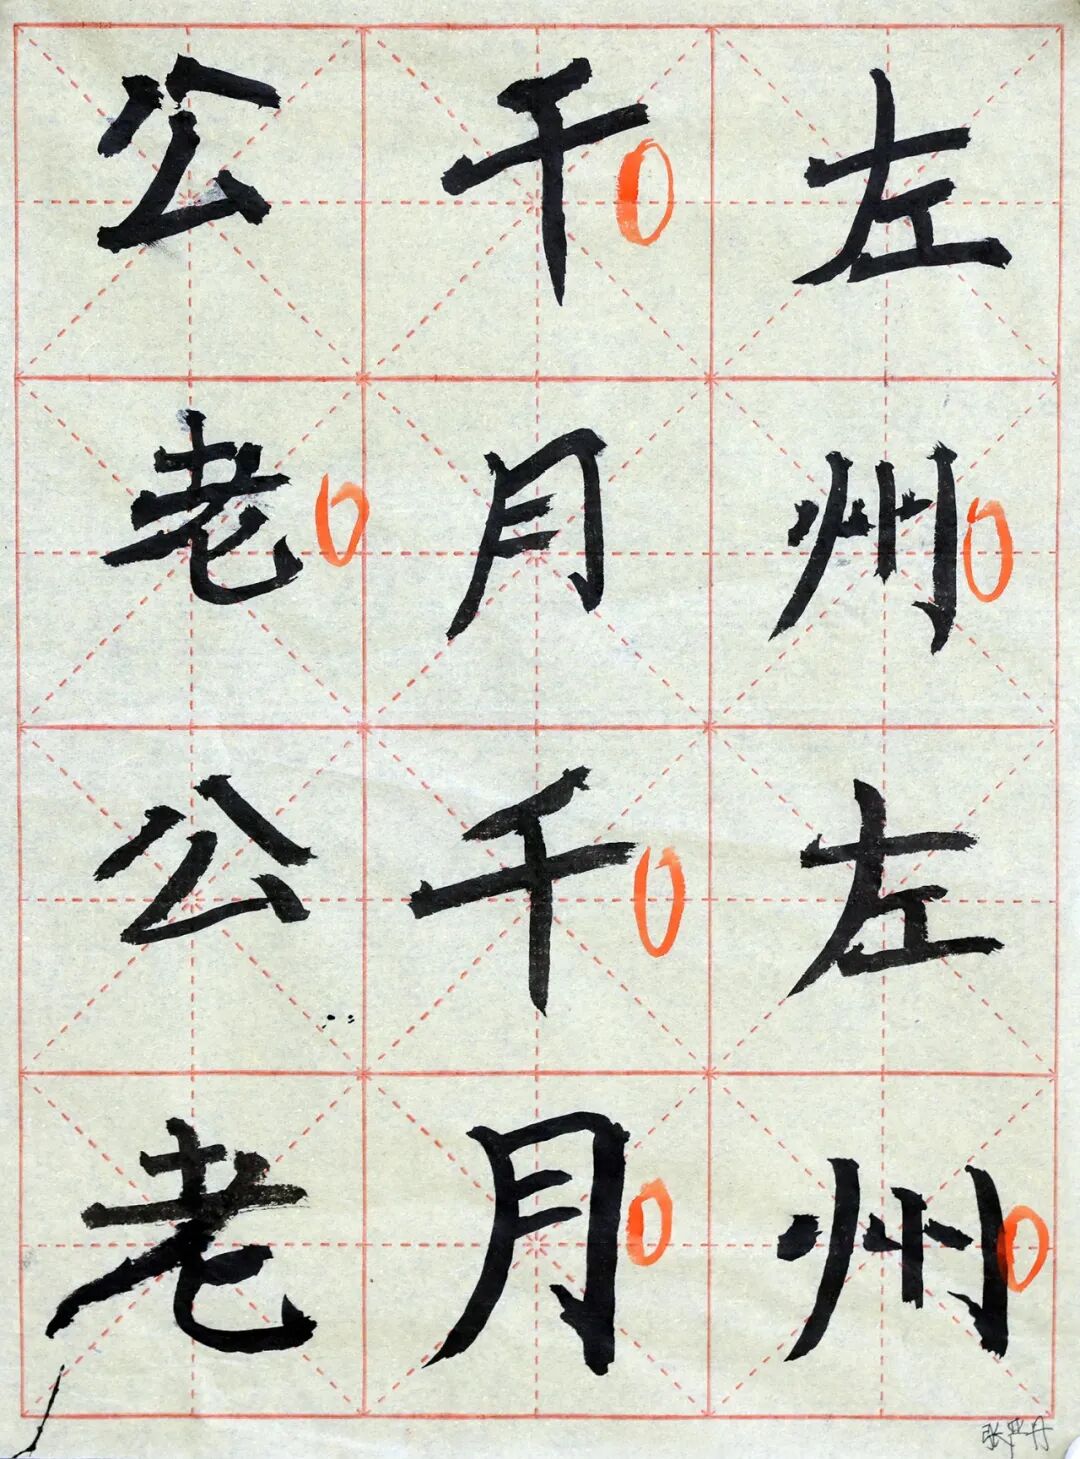 公千左
老月州
公千左
老月州
张严丹